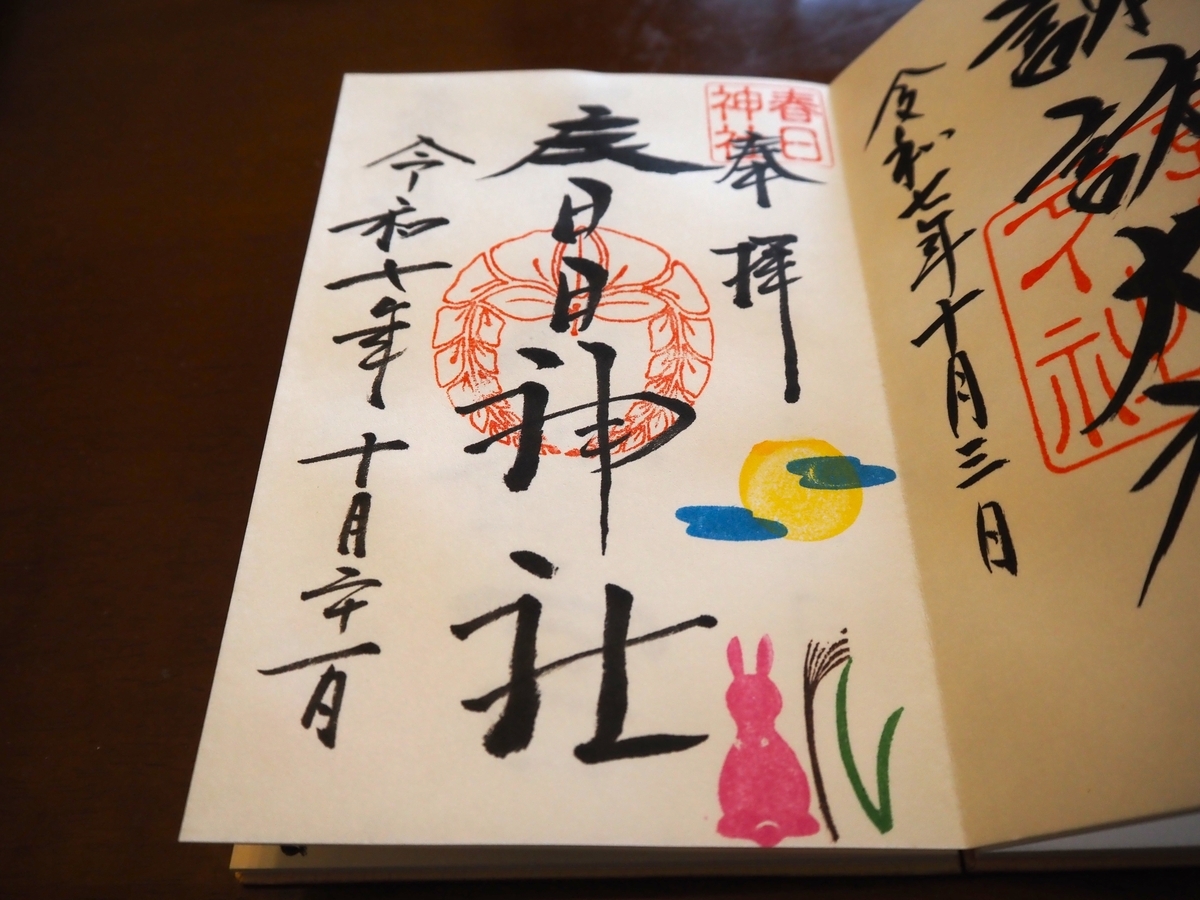 令和七年十月三日
春日神社
奉拝
春日神社
令和七年十月二十一日